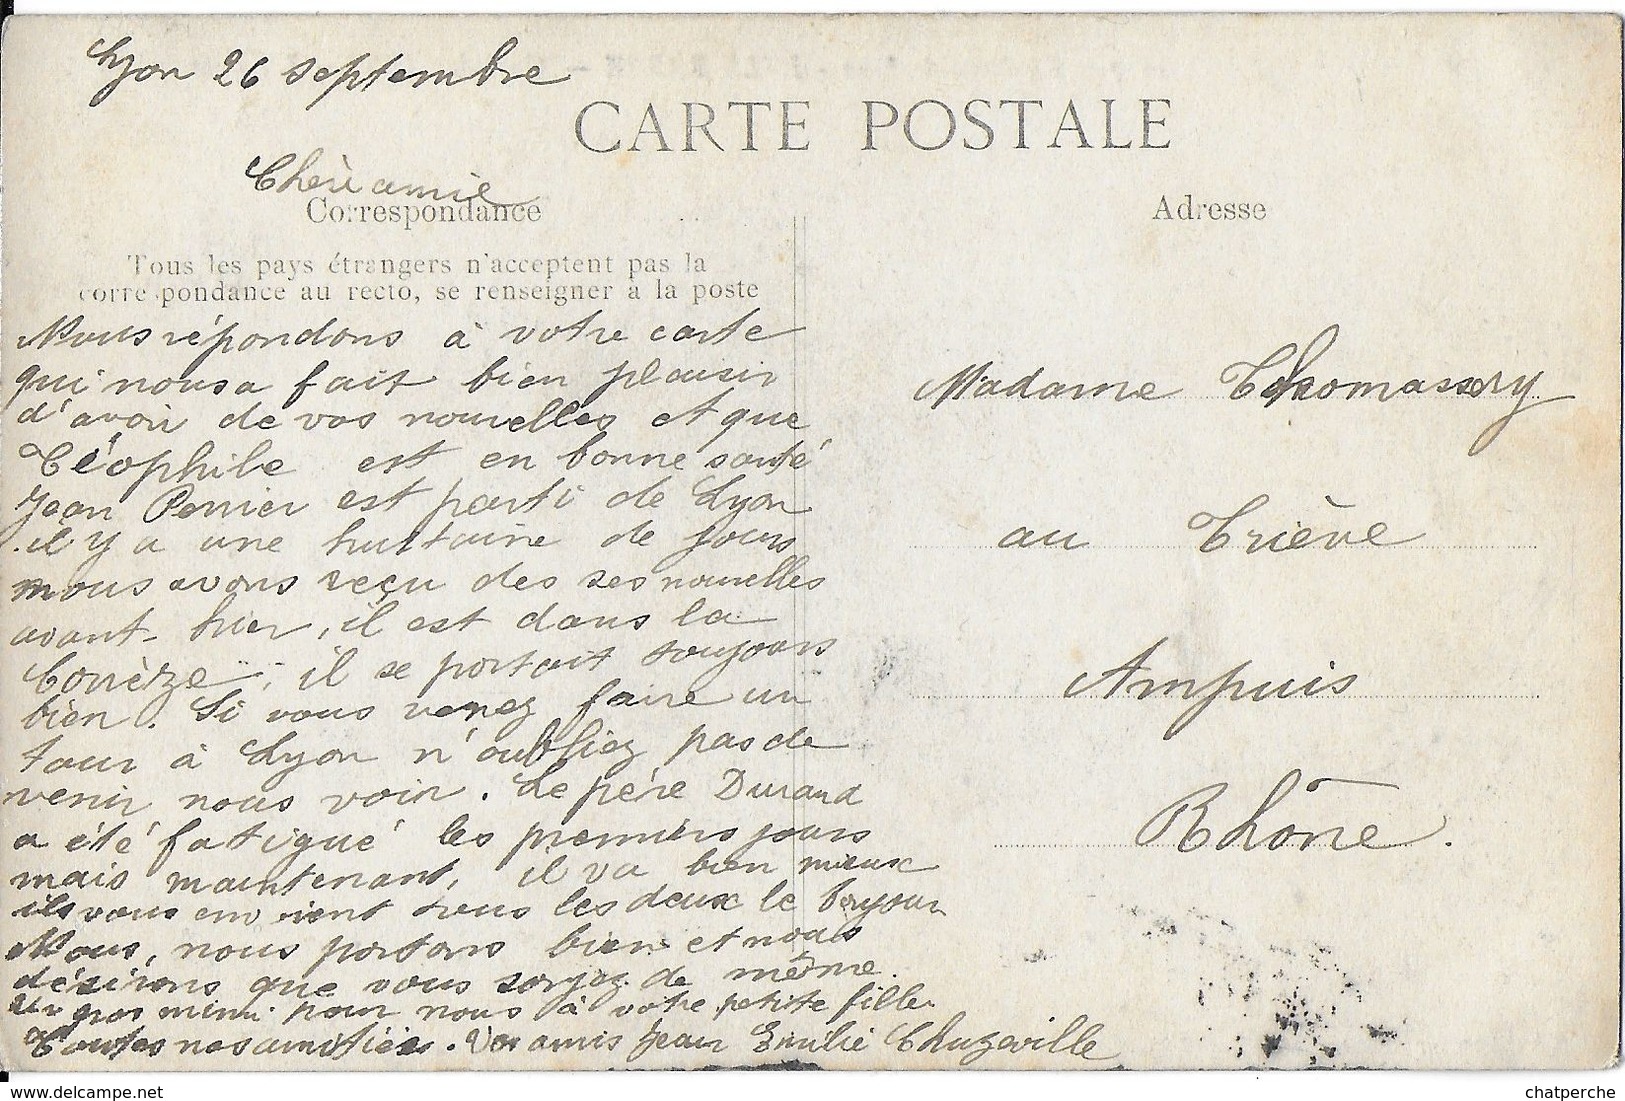 Lyon 26 septembre
CARTE POSTALE
Chère amie
Correspondance
Tous les pays étrangers n'acceptent pas la
correspondance au recto, se renseigner à la poste
Nous répondons à votre carte
qui nous a fait bien plaisir
d'avoir de vos nouvelles et que
Téophile est en bonne santé
Jean Perrier est parti de Lyon
il y a une huitaine de jours
nous avons reçu des ses nouvelles
avant-hier, il est dans la
Corrèze, il se portait toujours
bien. Si vous venez faire un
tour à Lyon n'oubliez pas de
venir nous voir. Le père Durand
a été fatigué les premiers jours
mais maintenant, il va bien mieux
ils vous envoient tous les deux le bonjour
Nous, nous portons bien et nous
désirons que vous soyez de même.
Un gros mimi pour nous à votre petite fille.
Toutes nos amitiés. Vos amis Jean Emilie Chuzeville
Adresse
Madame Thomassery
au Triève
Ampuis
Rhône.
chatperche